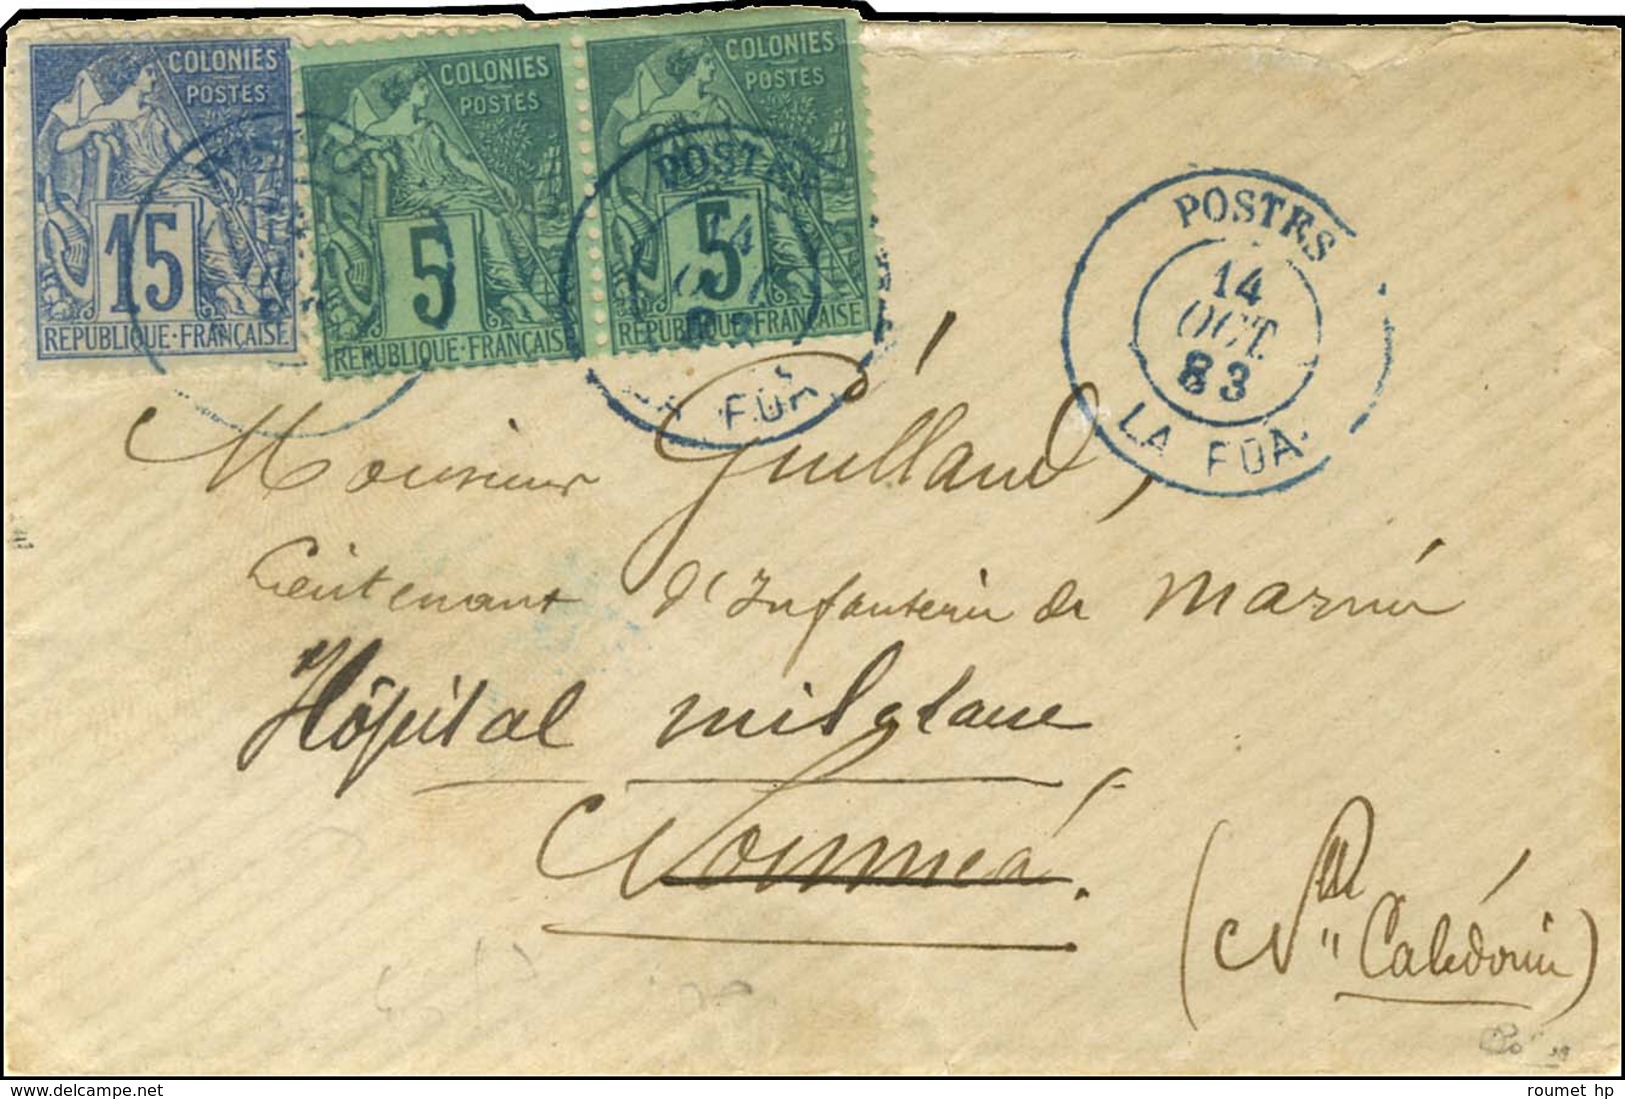 COLONIES
POSTES
15
REPUBLIQUE·FRANÇAISE
COLONIES
POSTES
5
REPUBLIQUE·FRANÇAISE
COLONIES
POSTES
5
REPUBLIQUE·FRANÇAISE
POSTES
14
FOA.
POSTES
14
OCT.
83
LA FOA.
Monsieur Guilland,
Lieutenant d'Infanterie de Marine
Hôpital militaire
Nouméa.
(Nlle Calédonie)
roumet hp